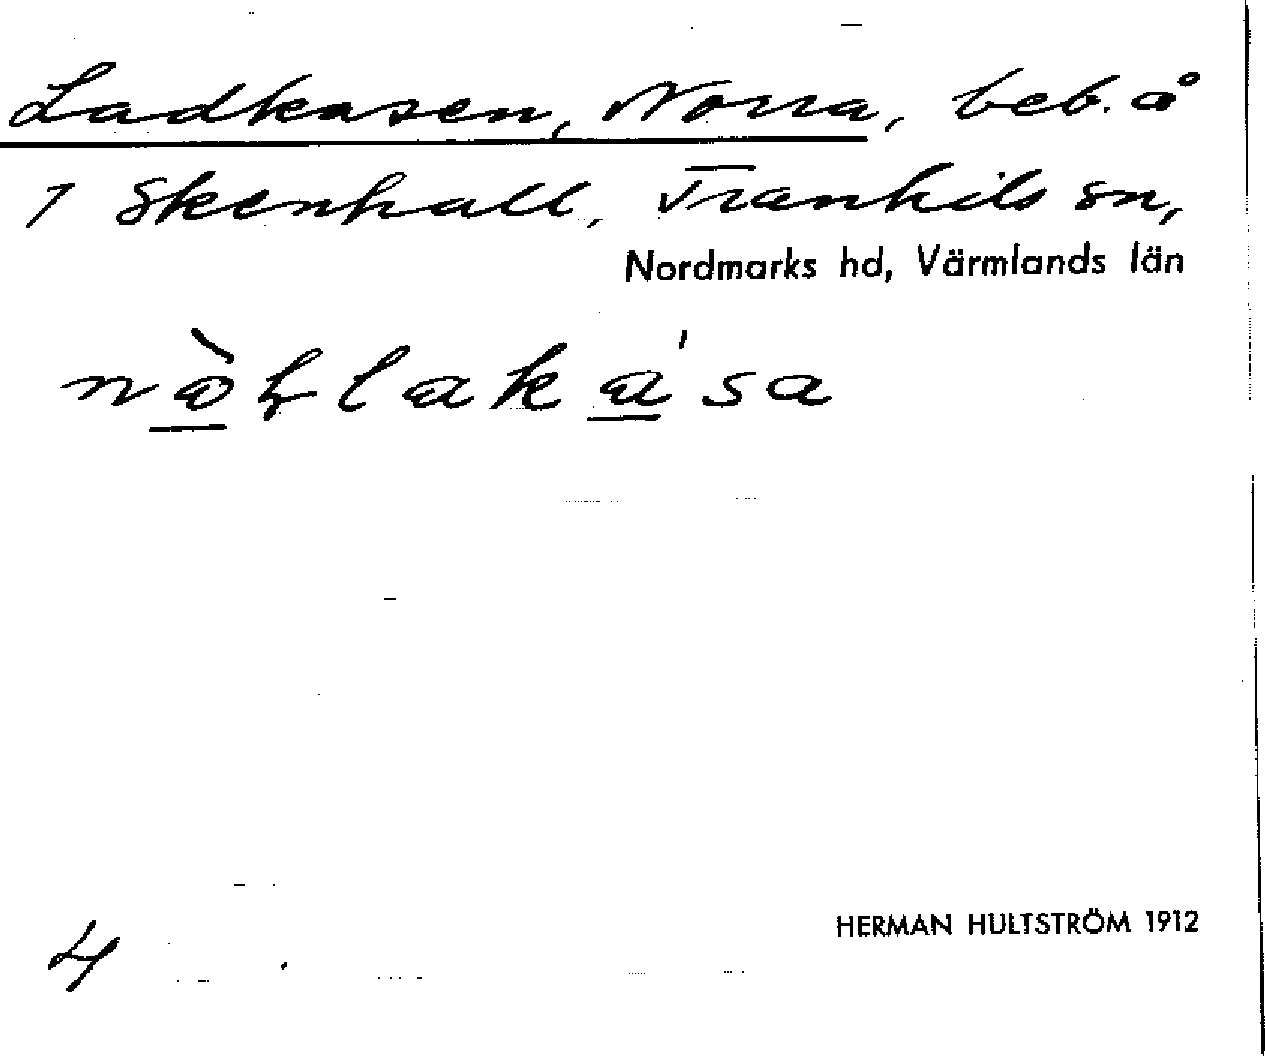 Ladkasen, Norra, beb. å
1 Skenhall, Trankils sn,
Nordmarks hd, Värmlands län
HERMAN HULTSTRÖM 1912
4